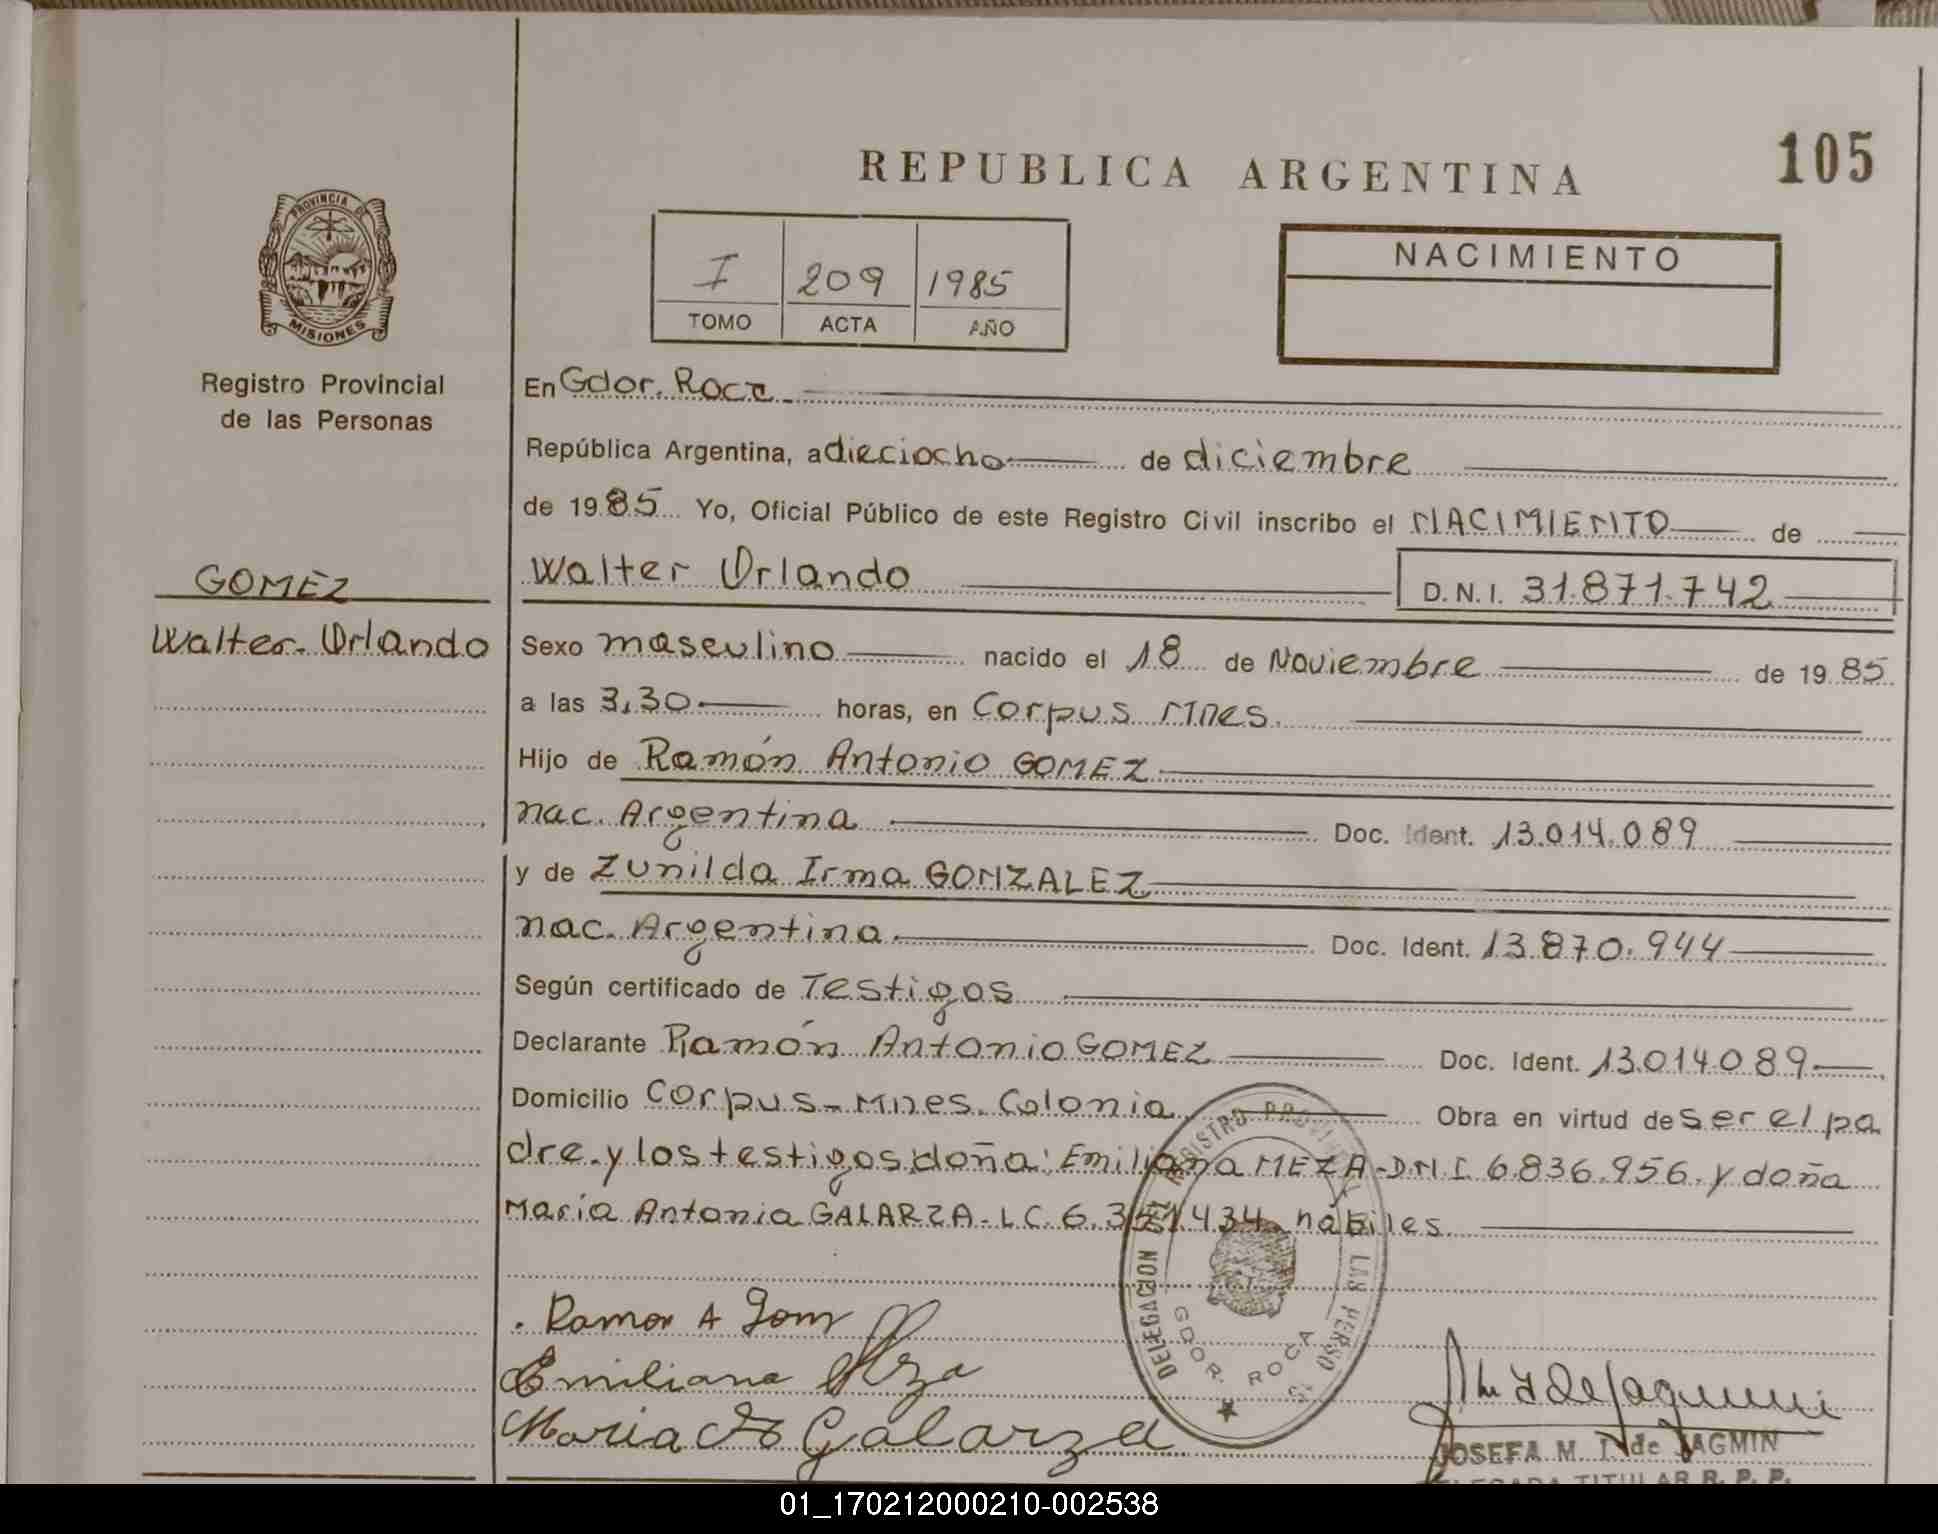 REPUBLICA ARGENTINA
105
PROVINCIA DE
MISIONES
Registro Provincial
de las Personas
I 209 1985
TOMO ACTA AÑO
NACIMIENTO
En Gdor. Roca
República Argentina, a dieciocho de diciembre
de 1985 Yo, Oficial Público de este Registro Civil inscribo el NACIMIENTO de
Walter Orlando D.N.I. 31.871.742
GOMEZ
Walter Orlando
Sexo masculino nacido el 18 de Noviembre de 1985
a las 3,30 horas, en Corpus Mnes.
Hijo de Ramón Antonio GOMEZ
nac. Argentina Doc. Ident. 13.014.089
y de Zunilda Irma GONZALEZ
nac. Argentina Doc. Ident. 13.870.944
Según certificado de Testigos
Declarante Ramón Antonio GOMEZ Doc. Ident. 13.014.089
Domicilio Corpus - Mnes. Colonia Obra en virtud de ser el pa
dre y los testigos doña: Emiliana MEZA - D.N.I. 6.836.956 y doña
María Antonia GALARZA - L C. 6.351.434 hábiles.
DELEGACION DEL REGISTRO PROVINCIAL DE LAS PERSONAS
GDOR. ROCA
Ramon A Gom
Emiliana Meza
Maria A Galarza
JOSEFA M. I. de JAGMIN
DELEGADA TITULAR R. P. P.
01_170212000210-002538